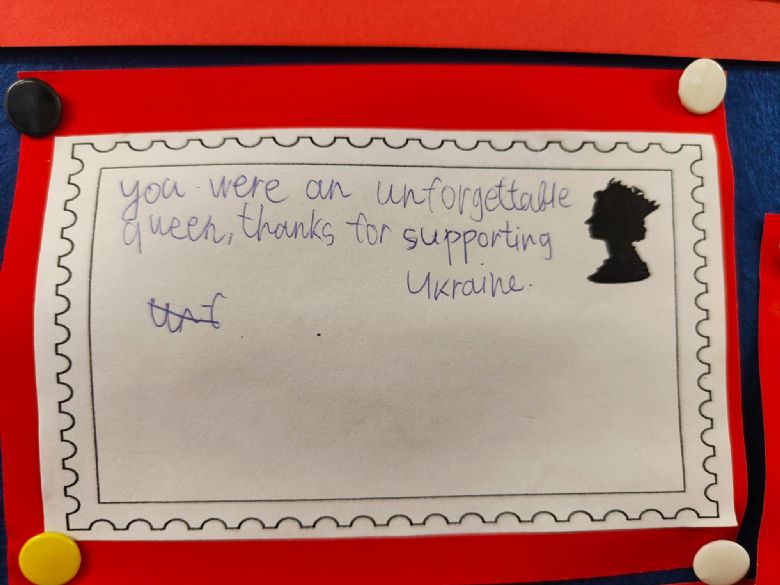 you were an unforgettable
queen, thanks for supporting
Ukraine.